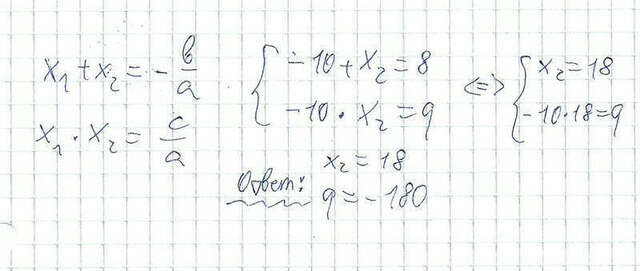 x₁ + x₂ = - b/a
x₁ · x₂ = c/a
{ -10 + x₂ = 8
-10 · x₂ = q
<=> { x₂ = 18
-10·18 = q
Ответ: x₂ = 18
q = -180